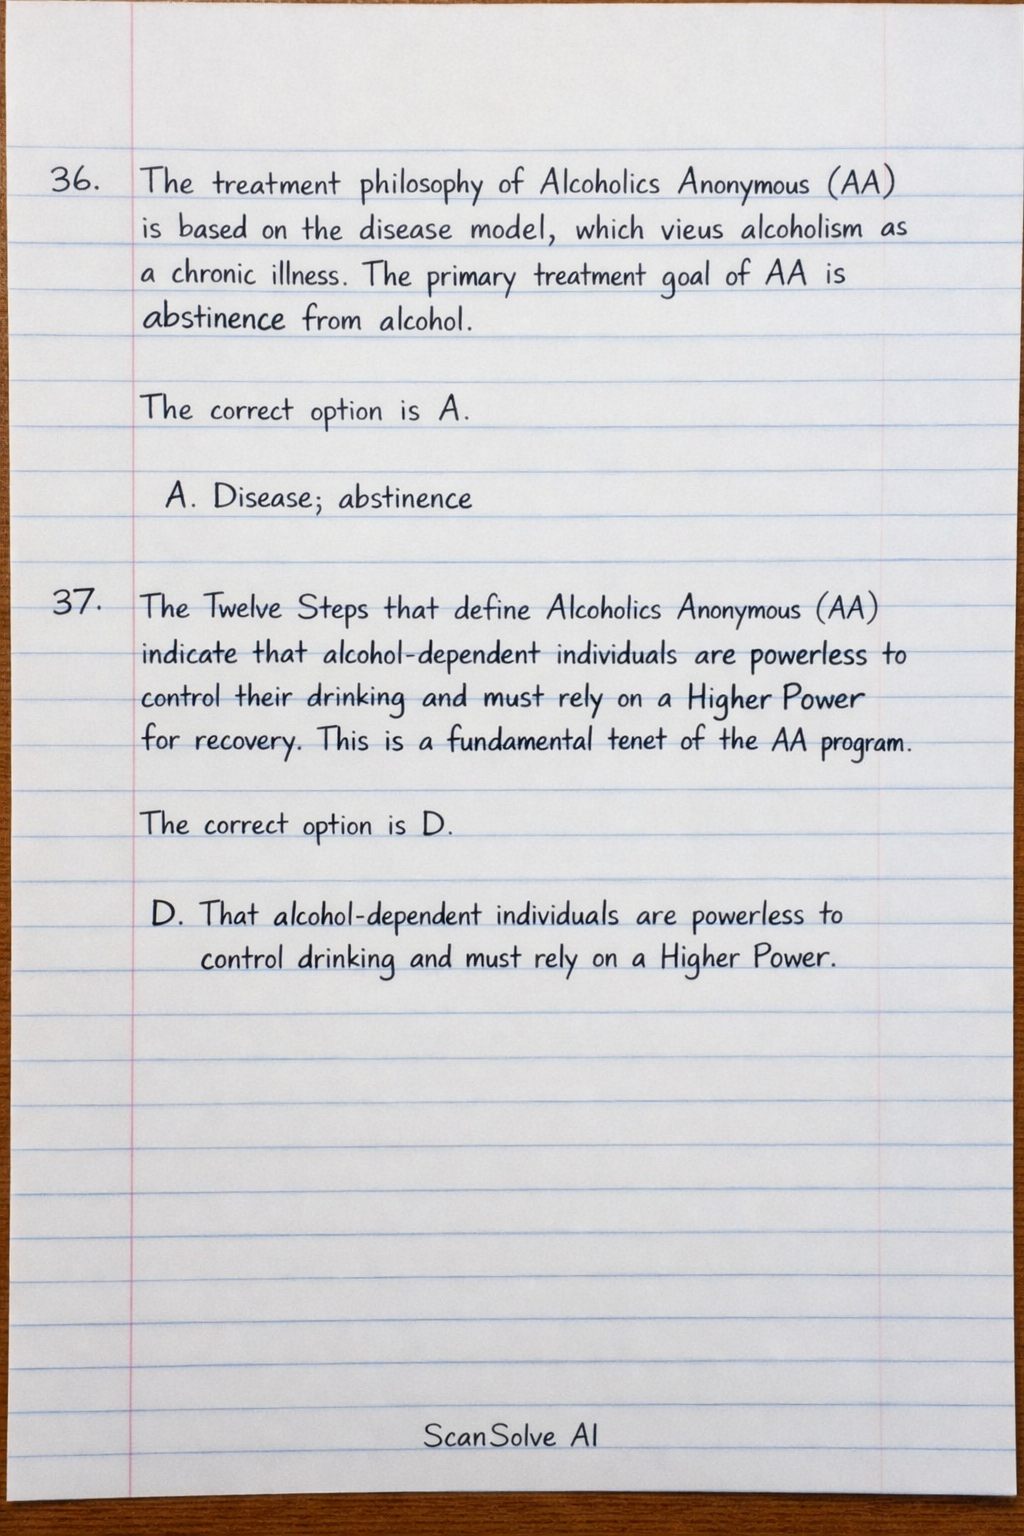 36. The treatment philosophy of Alcoholics Anonymous (AA)
is based on the disease model, which vieus alcoholism as
a chronic illness. The primary treatment goal of AA is
abstinence from alcohol.
The correct option is A.
A. Disease; abstinence
37. The Twelve Steps that define Alcoholics Anonymous (AA)
indicate that alcohol-dependent individuals are powerless to
control their drinking and must rely on a Higher Power
for recovery. This is a fundamental tenet of the AA program.
The correct option is D.
D. That alcohol-dependent individuals are powerless to
control drinking and must rely on a Higher Power.
ScanSolve AI